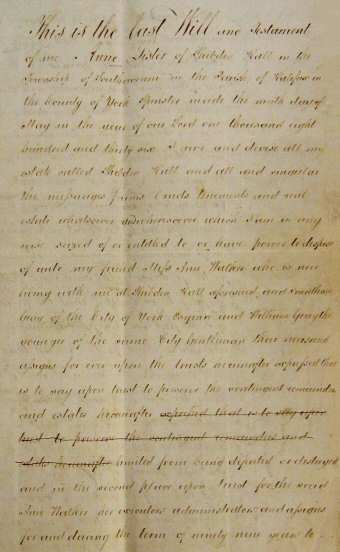 This is the last Will and Testament
of me Anne Lister of Shibden Hall in the
Township of Southowram in the Parish of Halifax in
the County of York Spinster made the ninth day of
May in the year of our Lord one thousand eight
hundred and thirty six I give and devise all my
estate called Shibden Hall and all and singular
the messuages farms lands tenements and real
estate whatsoever and wheresoever which I am in any
wise seized of or entitled to or have power to dispose
of unto my friend Miss Ann Walker who is now
living with me at Shibden Hall aforesaid, and Jonathan
Gray of the City of York Esquire and William Gray the
younger of the same City Gentleman their heirs and
assigns for ever upon the trusts hereinafter expressed that
is to say upon trust to preserve the contingent remainders
and estates hereinafter expressed that is to say upon
trust to preserve the contingent remainders and
estates hereinafter limited from being defeated or destroyed
and in the second place upon trust for the said
Ann Walker her executors administrators and assigns
for and during the term of ninety nine years to